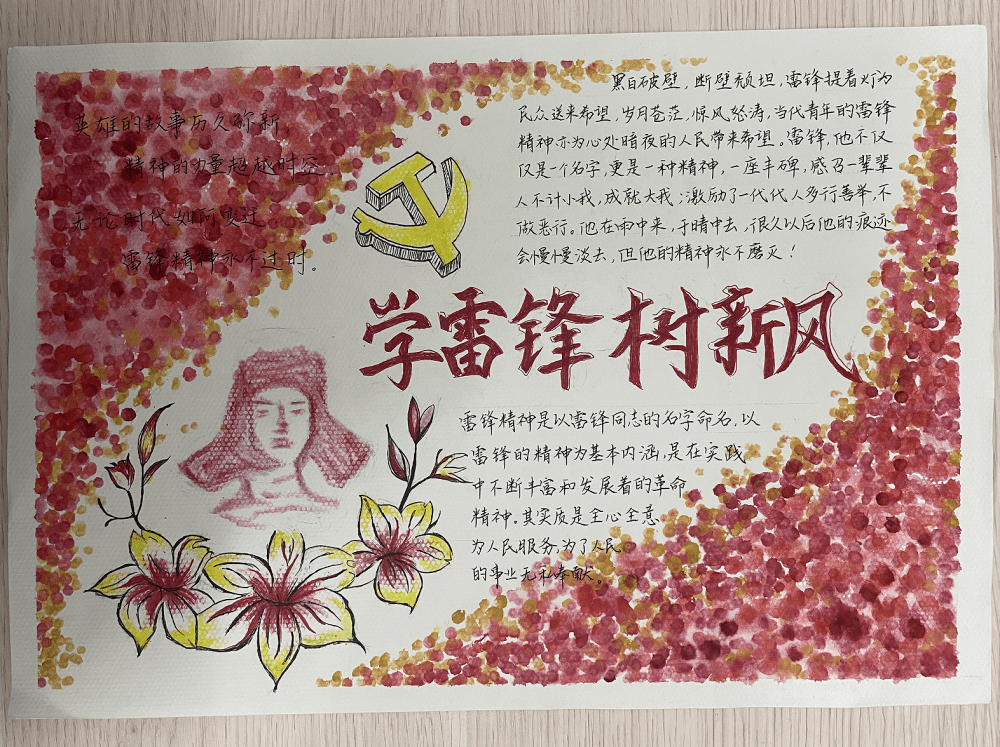 英雄的故事历久弥新,
精神的力量超越时空.
无论时代如何变迁
雷锋精神永不过时。
黑白破壁,断壁颓坦,雷锋提着灯为
民众送来希望,岁月苍茫,惊风怒涛,当代青年的雷锋
精神亦为心处暗夜的人民带来希望。雷锋,他不仅
仅是一个名字,更是一种精神,一座丰碑,感召一辈辈
人不计小我,成就大我;激励了一代代人多行善举,不
做恶行。他在雨中来,于晴中去,很久以后他的痕迹
会慢慢淡去,但他的精神永不磨灭!
学雷锋 树新风
雷锋精神是以雷锋同志的名字命名,以
雷锋的精神为基本内涵,是在实践
中不断丰富和发展着的革命
精神。其实质是全心全意
为人民服务,为了人民
的事业无私奉献。